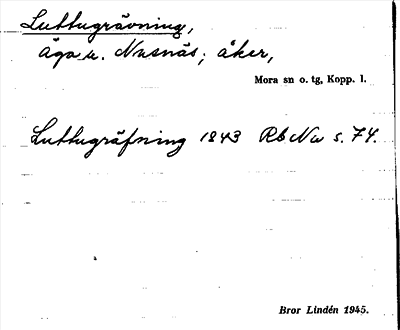 Luttugrävning,
äga u. Nusnäs; åker,
Mora sn o. tg, Kopp. l.
Luttugräfning 1843 Rb Nu s. 74.
Bror Lindén 1945.